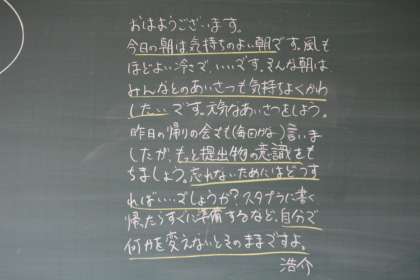 おはようございます。
今日の朝は気持ちのよい朝です。風も
ほどよい冷こで、いいです。そんな朝は、
みんなとのあいさつも気持ちよくかわ
したいです。元気なあいさつをしよう。
昨日の帰りの会でも(毎回かな)言いま
したが、もっと提出物の意識をも
ちましょう。忘れないためにはどうす
ればいいでしょうか?スタプラに書く
帰ったらすぐに準備するなど、自分で
何かを変えないとそのままですよ。
浩介